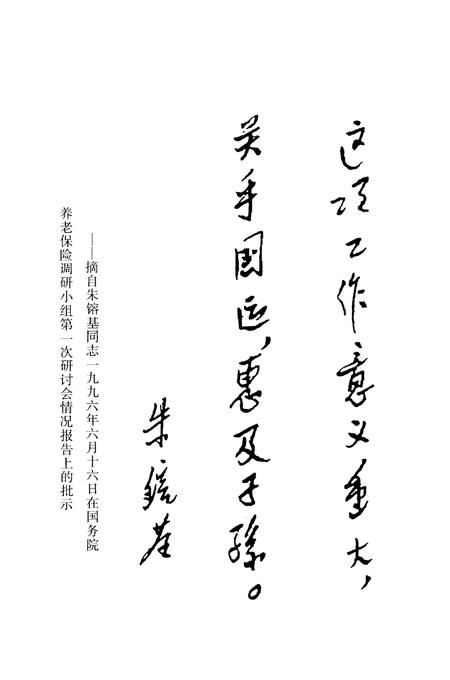 这项工作意义重大，
关乎国运，惠及子孫。
朱镕基
——摘自朱镕基同志一九九六年六月十六日在国务院
养老保险调研小组第一次研讨会情况报告上的批示